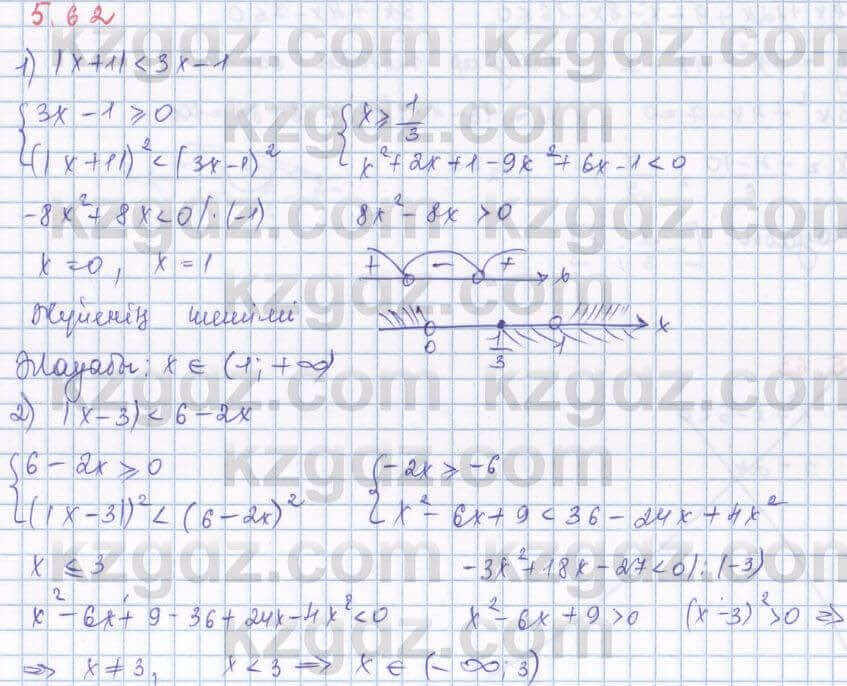 5.62
1) |x+1| < 3x-1
{3x-1 ≥ 0 {x ≥ 1/3
{(|x+1|)² < (3x-1)² {x²+2x+1-9x²+6x-1<0
-8x²+8x<0 |·(-1) 8x²-8x>0
x=0, x=1 + - + x
Жүйенің шешімі 0 1/3 1 x
Жауабы: x ∈ (1; +∞)
2) |x-3| < 6-2x
{6-2x ≥ 0 {-2x ≥ -6
{(|x-3|)² < (6-2x)² {x²-6x+9<36-24x+4x²
x ≤ 3 -3x²+18x-27<0 |:(-3)
x²-6x+9-36+24x-4x²<0 x²-6x+9>0 (x-3)²>0 ⇒
⇒ x≠3, x<3 ⇒ x ∈ (-∞; 3)
kzgdz.com